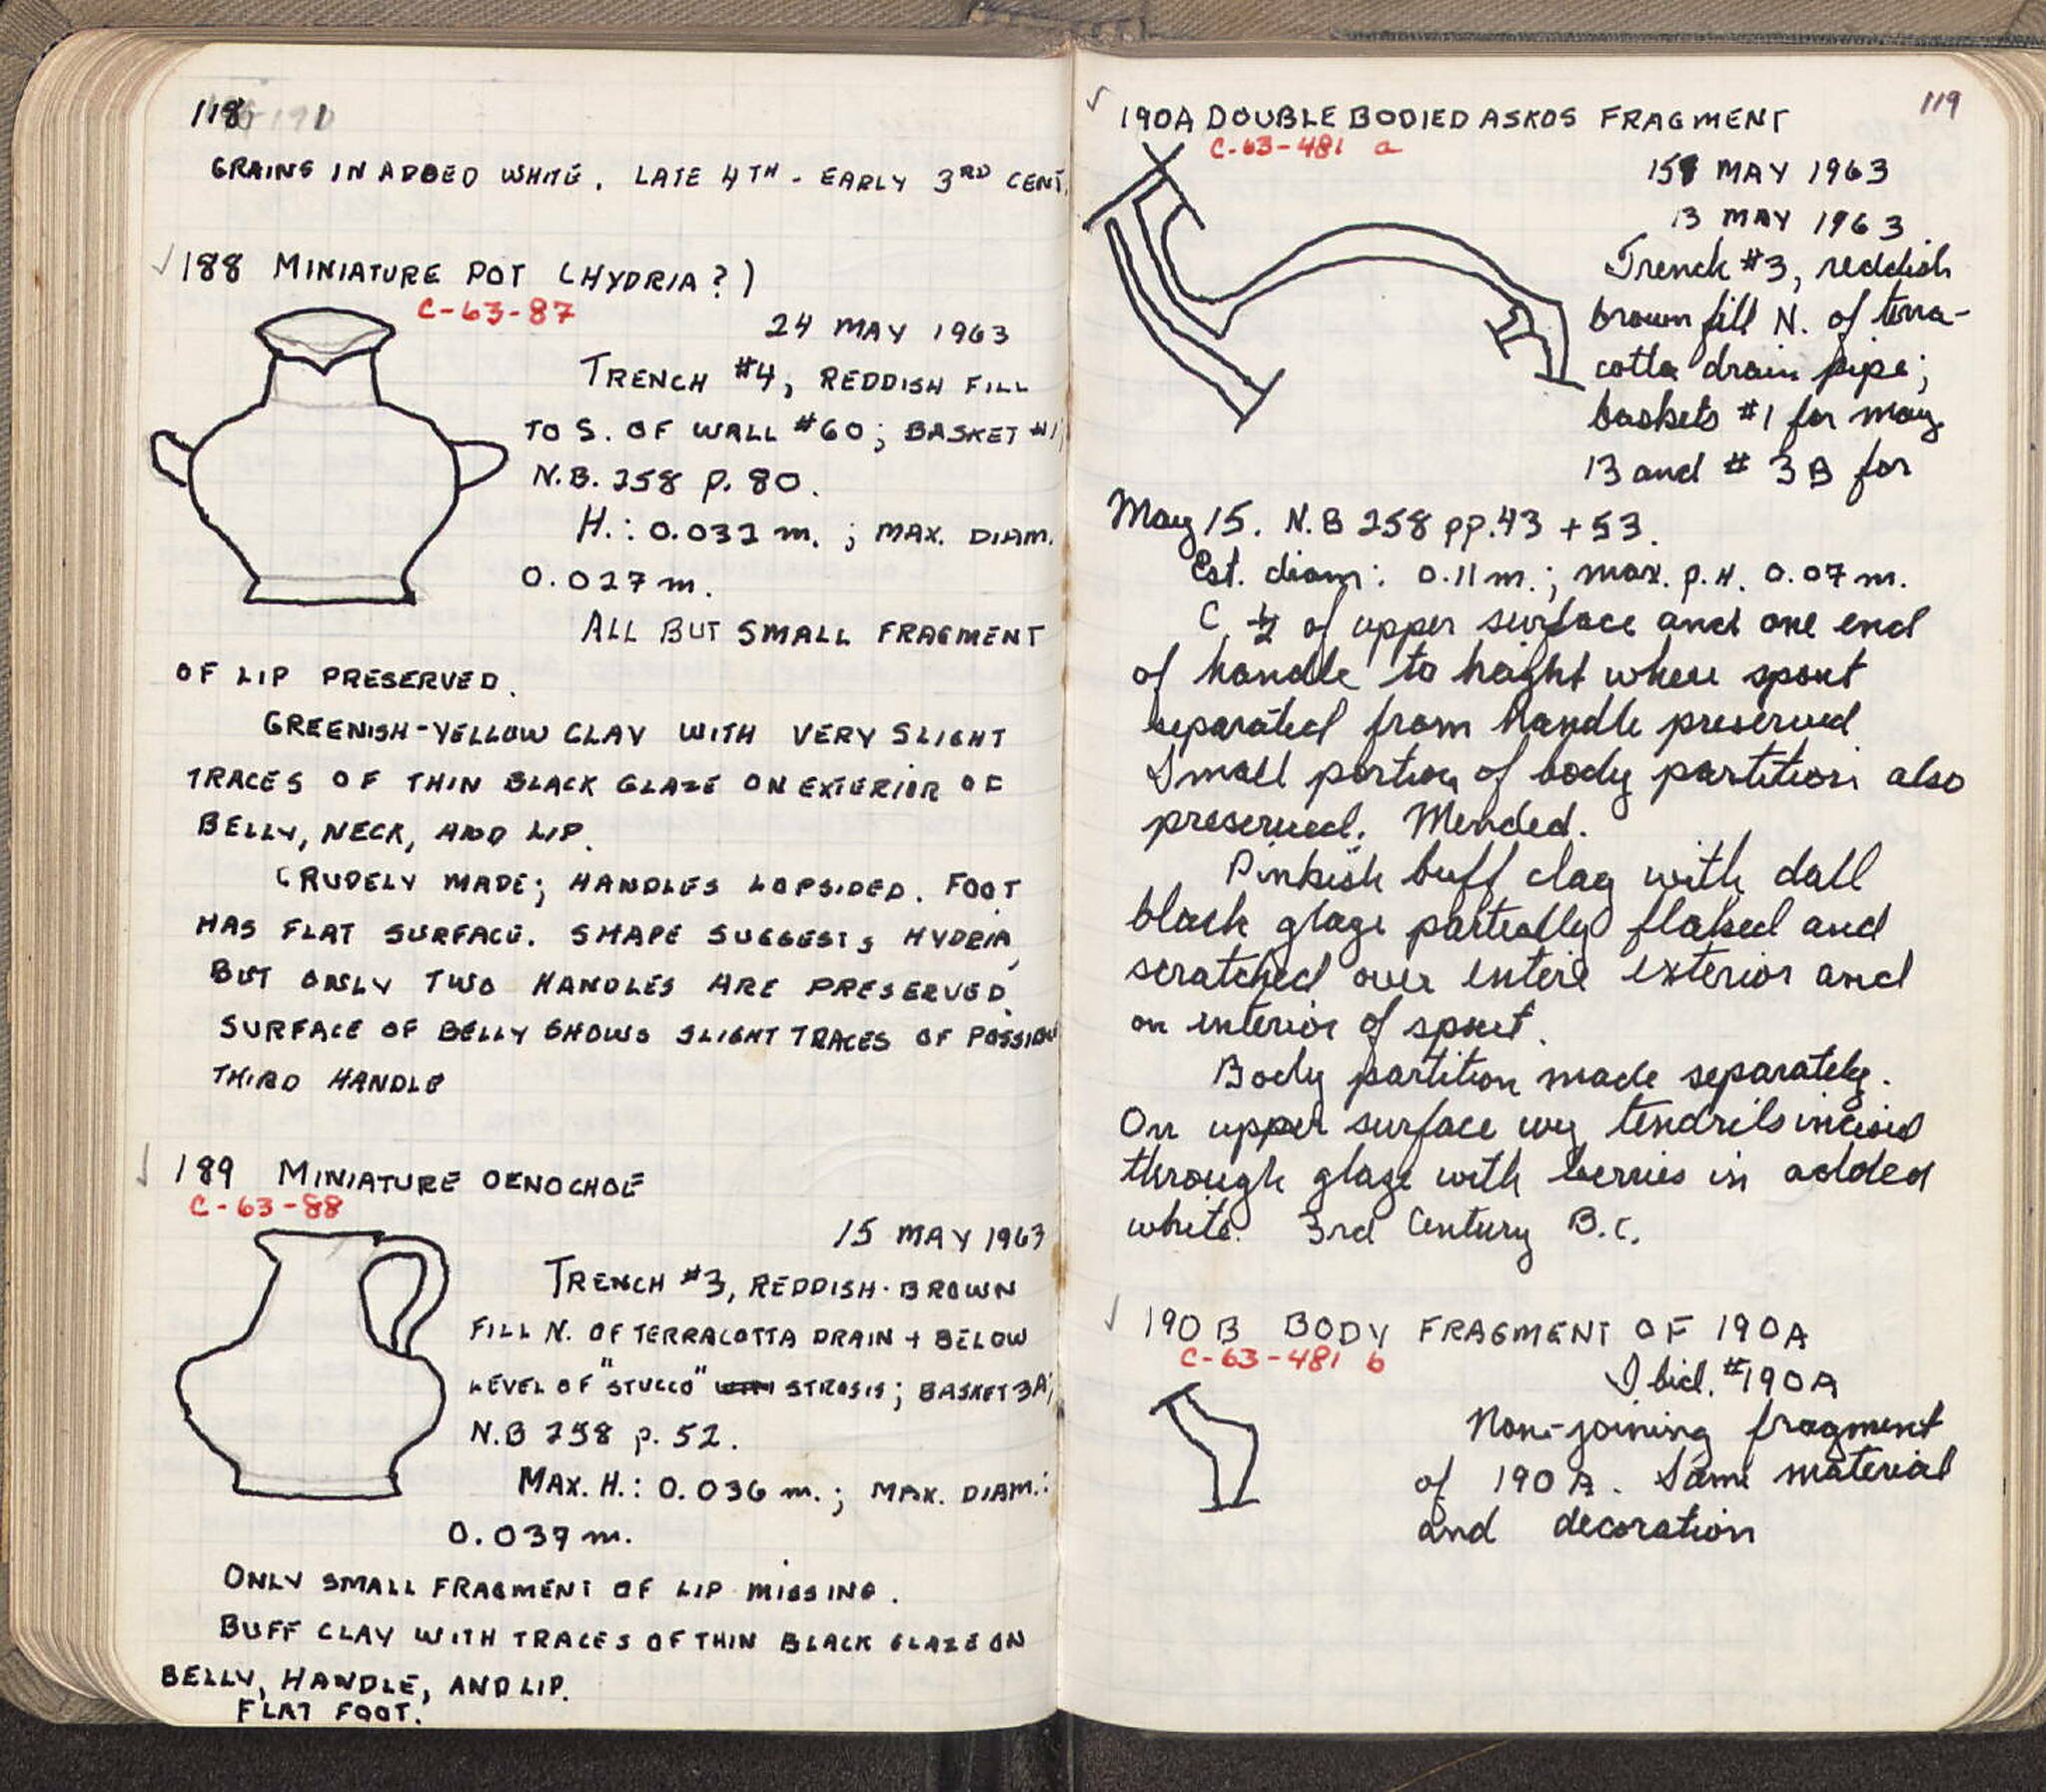 118
GRAINS IN ADDED WHITE. LATE 4TH - EARLY 3RD CENT.
✓ 188 MINIATURE POT (HYDRIA?)
C-63-87
24 MAY 1963
TRENCH #4, REDDISH FILL
TO S. OF WALL #60; BASKET #1,
N.B. 258 P. 80.
H.: 0.032 m.; MAX. DIAM.
0.027 m.
ALL BUT SMALL FRAGMENT
OF LIP PRESERVED.
GREENISH-YELLOW CLAY WITH VERY SLIGHT
TRACES OF THIN BLACK GLAZE ON EXTERIOR OF
BELLY, NECK, AND LIP.
CRUDELY MADE; HANDLES LOPSIDED. FOOT
HAS FLAT SURFACE. SHAPE SUGGESTS HYDRIA,
BUT ONLY TWO HANDLES ARE PRESERVED.
SURFACE OF BELLY SHOWS SLIGHT TRACES OF
THIRD HANDLE
✓ 189 MINIATURE OENOCHOE
C-63-88
15 MAY 1963
TRENCH #3, REDDISH-BROWN
FILL N. OF TERRACOTTA DRAIN + BELOW
LEVEL OF "STUCCO" STROSIS; BASKET 3A,
N.B 258 p. 52.
MAX. H.: 0.036 m.; MAX. DIAM.:
0.039 m.
ONLY SMALL FRAGMENT OF LIP MISSING.
BUFF CLAY WITH TRACES OF THIN BLACK GLAZE ON
BELLY, HANDLE, AND LIP.
FLAT FOOT.
119
✓ 190A DOUBLE BODIED ASKOS FRAGMENT
C-63-481 a
15 MAY 1963
13 MAY 1963
Trench #3, reddish
brown fill N. of terra-
cotta drain pipe;
baskets #1 for May
13 and #3B for
May 15. N.B 258 pp. 43 + 53.
Est. diam: 0.11 m.; max. p.H. 0.07 m.
C. ½ of upper surface and one end
of handle to height where spout
separated from handle preserved.
Small portion of body partition also
preserved. Mended.
Pinkish buff clay with dull
black glaze partially flaked and
scratched over entire exterior and
on interior of spout.
Body partition made separately.
On upper surface ivy tendrils incised
through glaze with berries in added
white. 3rd Century B.C.
✓ 190B BODY FRAGMENT OF 190A
C-63-481 b
Ibid. #190A
Non-joining fragment
of 190A. Same material
and decoration